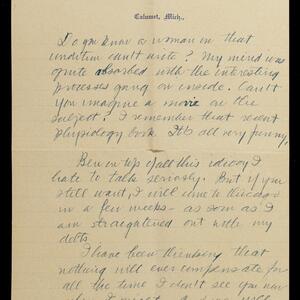 Calumet, Mich.,
Do you know a woman in that
condition can't write? My mind was
quite absorbed with the interesting
processes going on inside. Can't
you imagine a movie on the
subject? I remember that recent
physiology book. It's all very funny,
Ben on top of all this idiocy I
hate to talk seriously. But if you
still want, I will come to
in a few weeks - as soon as I
am straightened out with my
debts.
I have been thinking that
nothing will ever compensate for
all the time I don't see you now